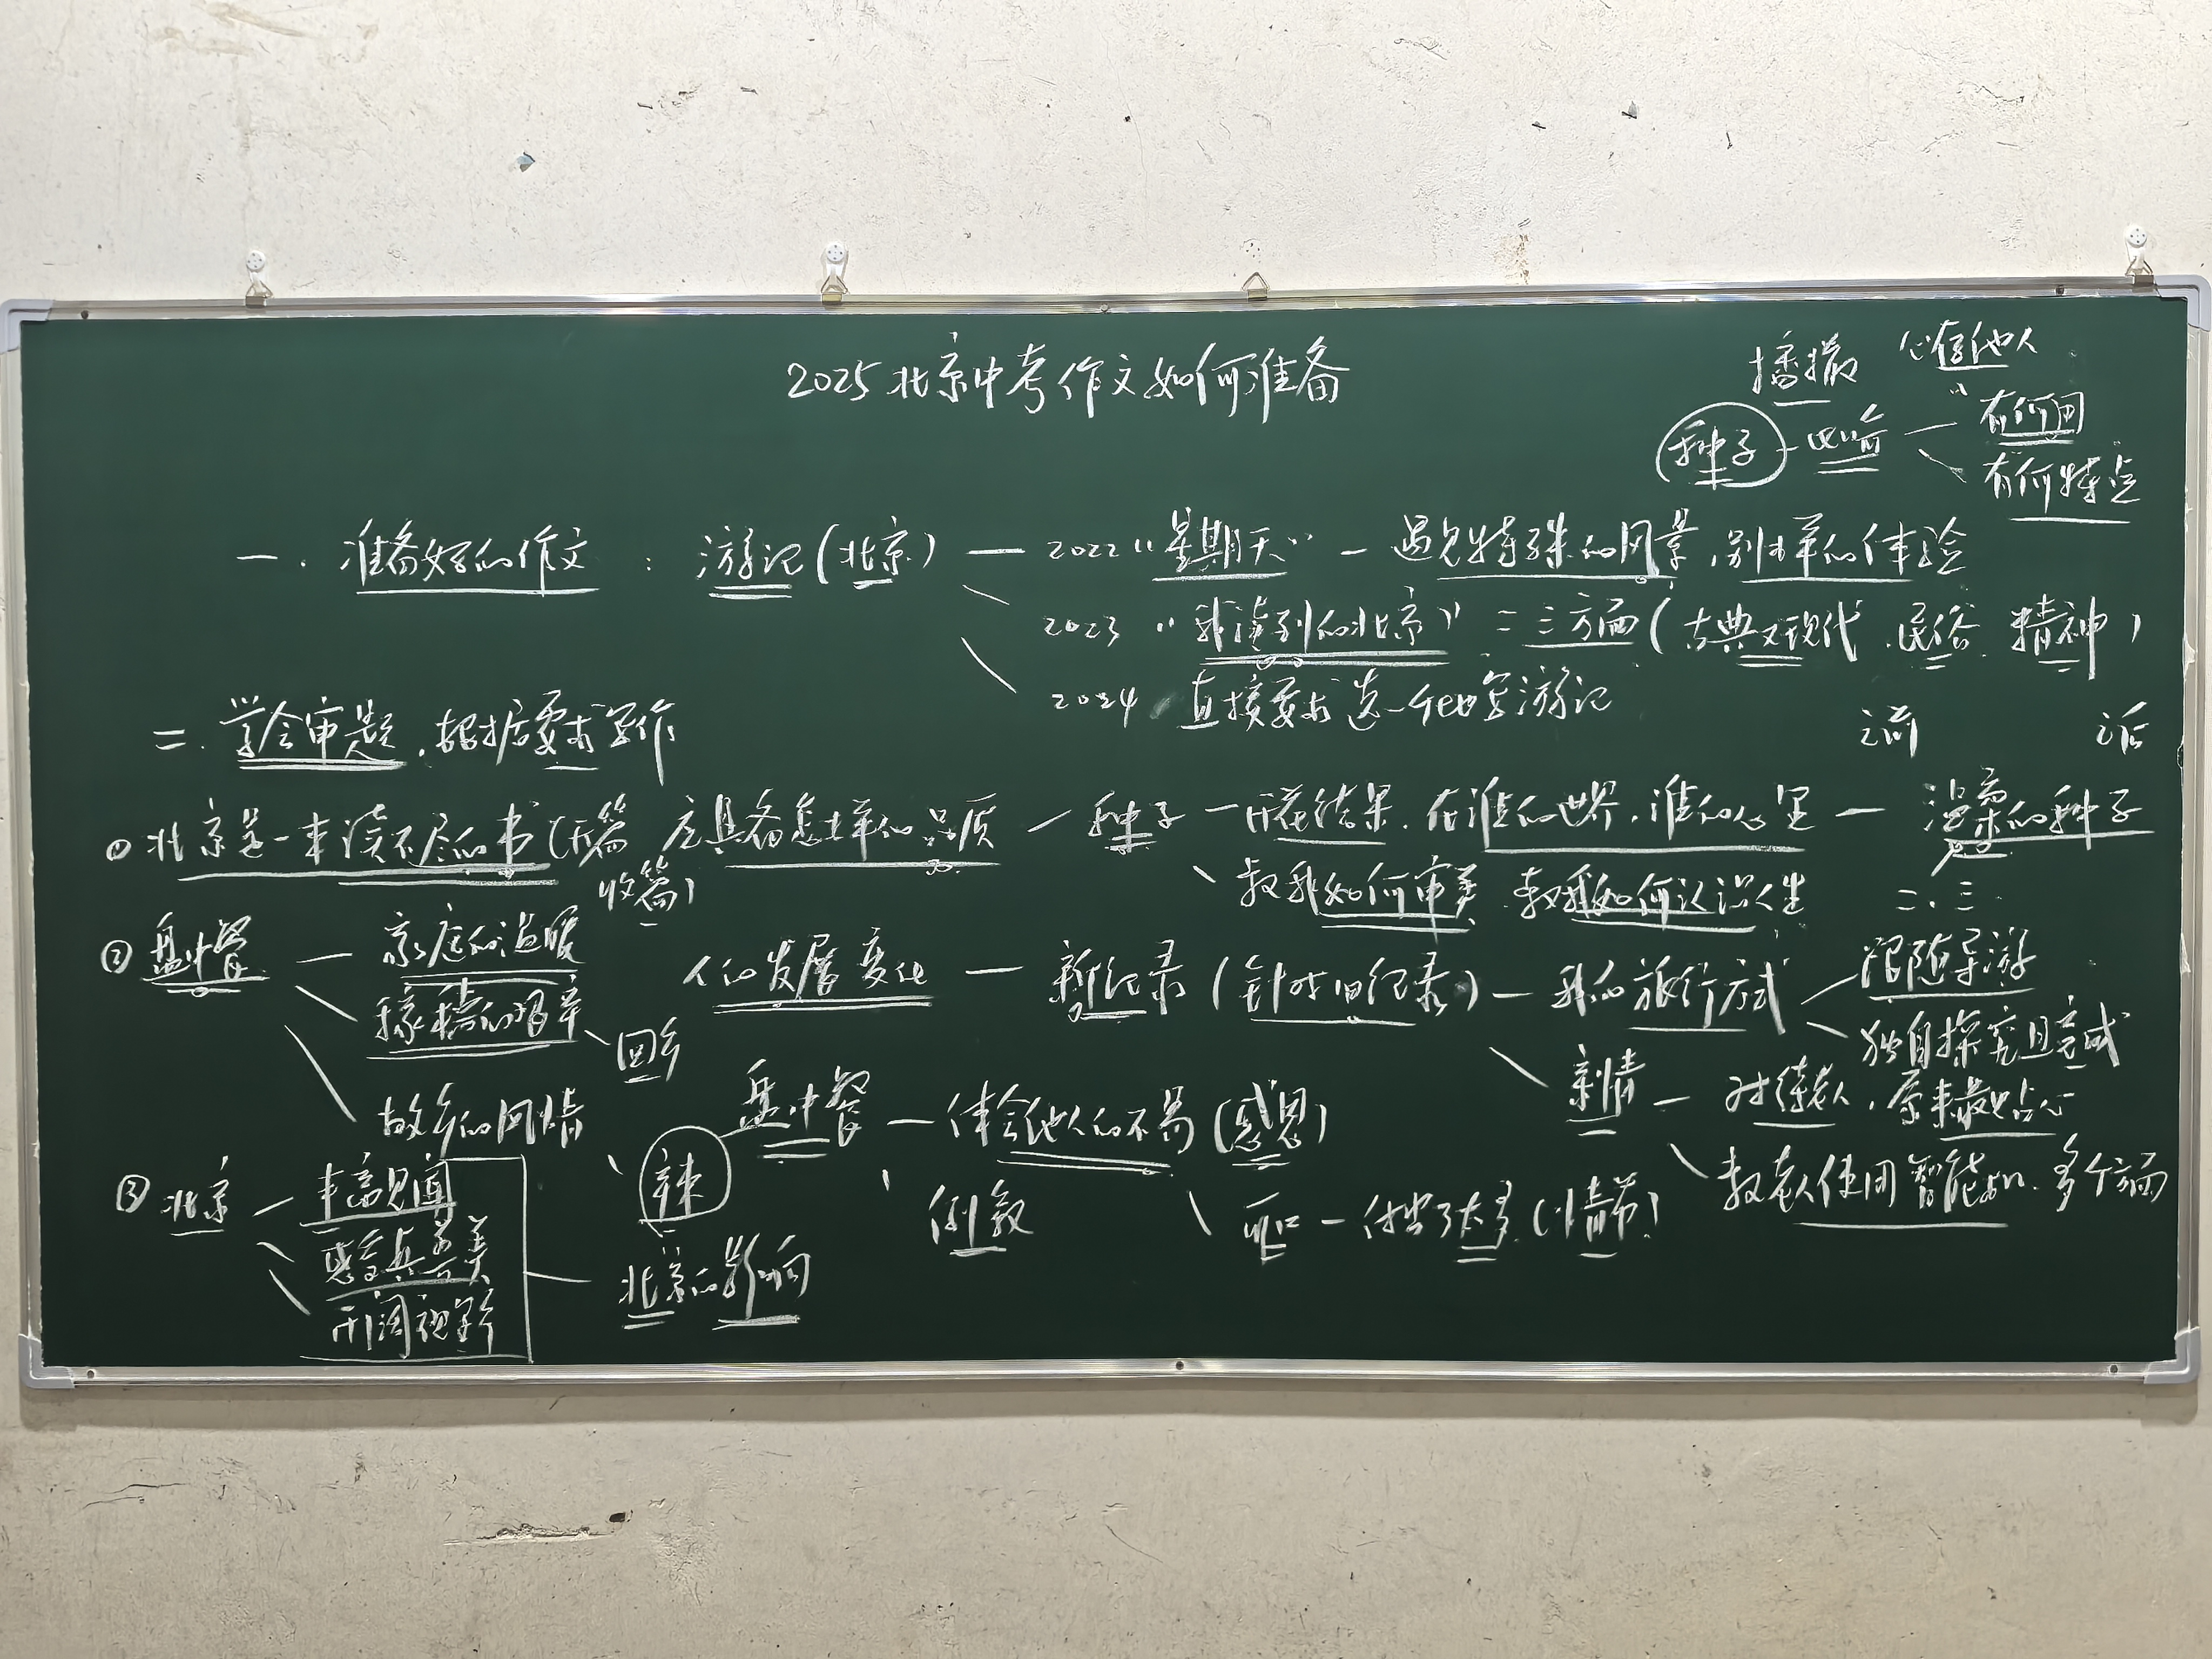 2025北京中考作文如何准备
播撒 心有他人
种子 - 比喻 — 有何用
有何特点
一. 准备好的作文 : 游记(北京) — 2022 "星期天" - 遇见特殊的风景,别样的体验
2023 "我读到的北京" 三方面(古典又现代.民俗 精神)
2024 直接要求选一个地写游记
二. 学会审题.根据要求写作
之前 之后
① 北京是一本读不尽的书(开篇 收篇)
应具备怎样的品质 — 种子 — 开花结果.在谁的世界.谁的心里 — 温柔的种子
教我如何审美 教我如何认识人生
二.三
② 盘中餐 — 家庭的温暖
稼穑的艰辛 回乡
故乡的风情
人的发展变化 — 新纪录(针对旧纪录) — 我的旅行方式 跟随导游
独自探究且完成
亲情 — 对待老人,原来最
教老人使用智能 多个方面
辣
盘中餐 — 体会他人的不易(感恩)
例数
一口 — 付出了太多(情节)
③ 北京 — 丰富见闻
感受真善美
开阔视野
北京的影响